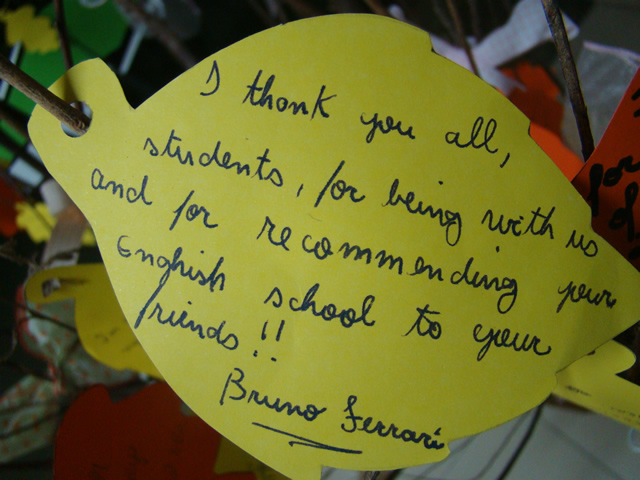 I thank you all,
students, for being with us
and for recommending your
English school to your
friends!!
Bruno Ferrari